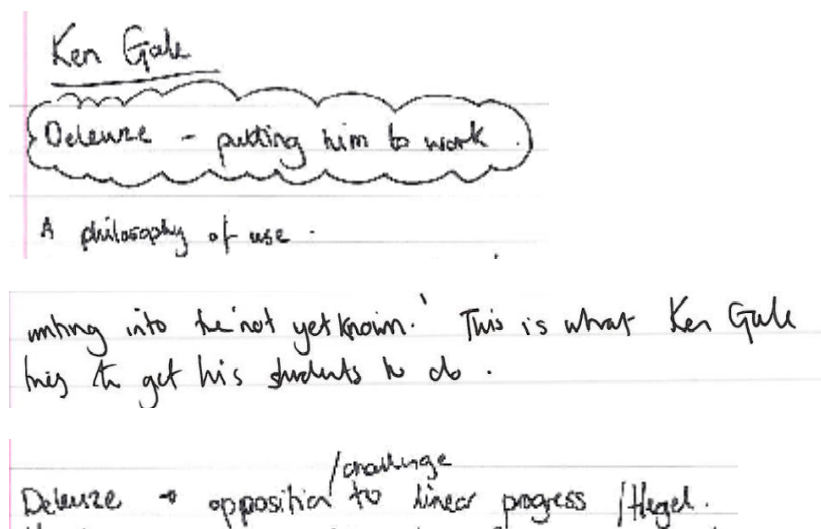 Ken Gale
Deleuze - putting him to work.
A philosophy of use.
writing into the 'not yet known.' This is what Ken Gale
tries to get his students to do.
/challenge
Deleuze → opposition to linear progress /Hegel.